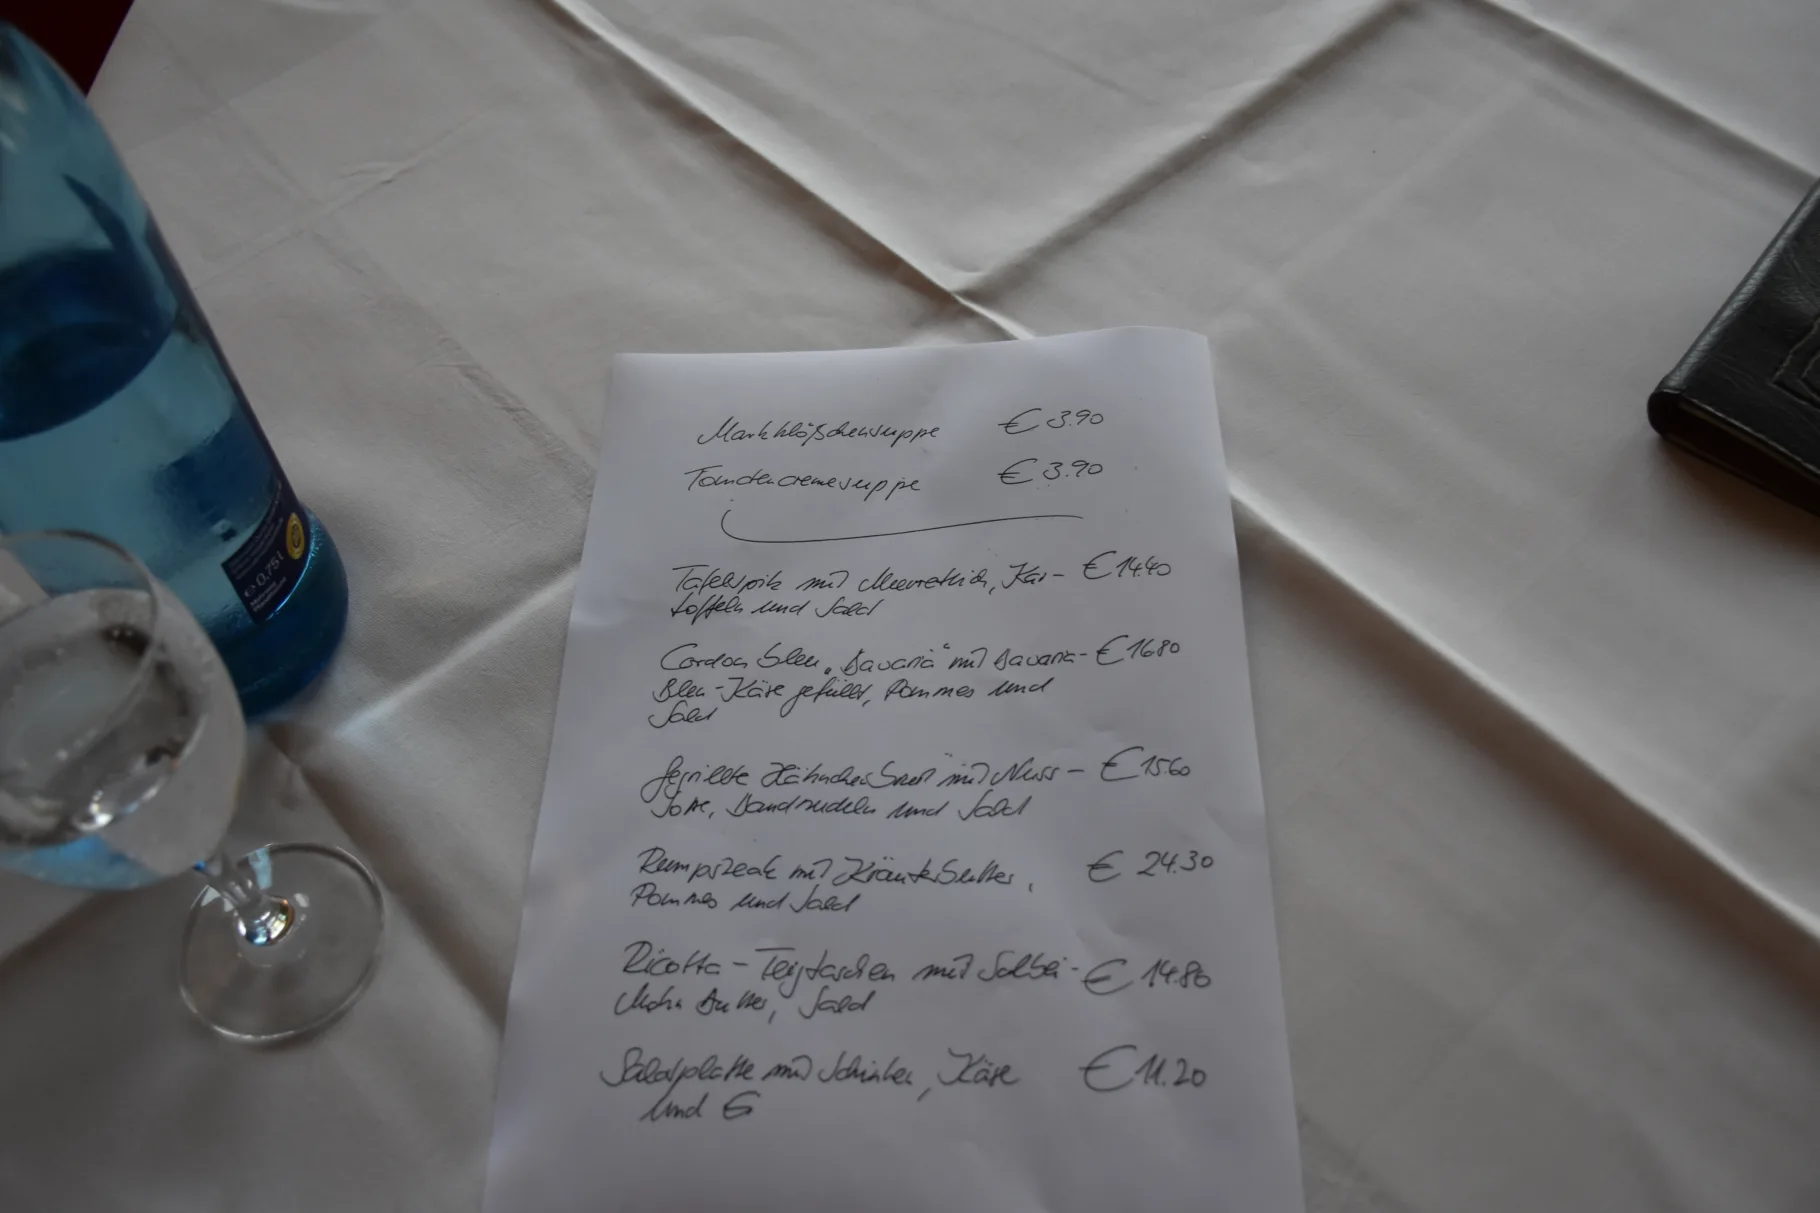 Markklößchensuppe € 3.90
Tomatencremesuppe € 3.90
Tafelspitz mit Meerrettich, Kar- € 14.40
toffeln und Salat
Cordon bleu „Bavaria“ mit Bavaria- € 16.80
Bleu-Käse gefüllt, Pommes und
Salat
Gegrillte Hähnchenbrust mit Nuss- € 15.60
Soße, Bandnudeln und Salat
Rumpsteak mit Kräuterbutter, € 24.30
Pommes und Salat
Ricotta-Teigtaschen mit Salbei- € 14.80
Mohn Butter, Salat
Salatplatte mit Schinken, Käse € 11.20
und Ei
e 0,75 l